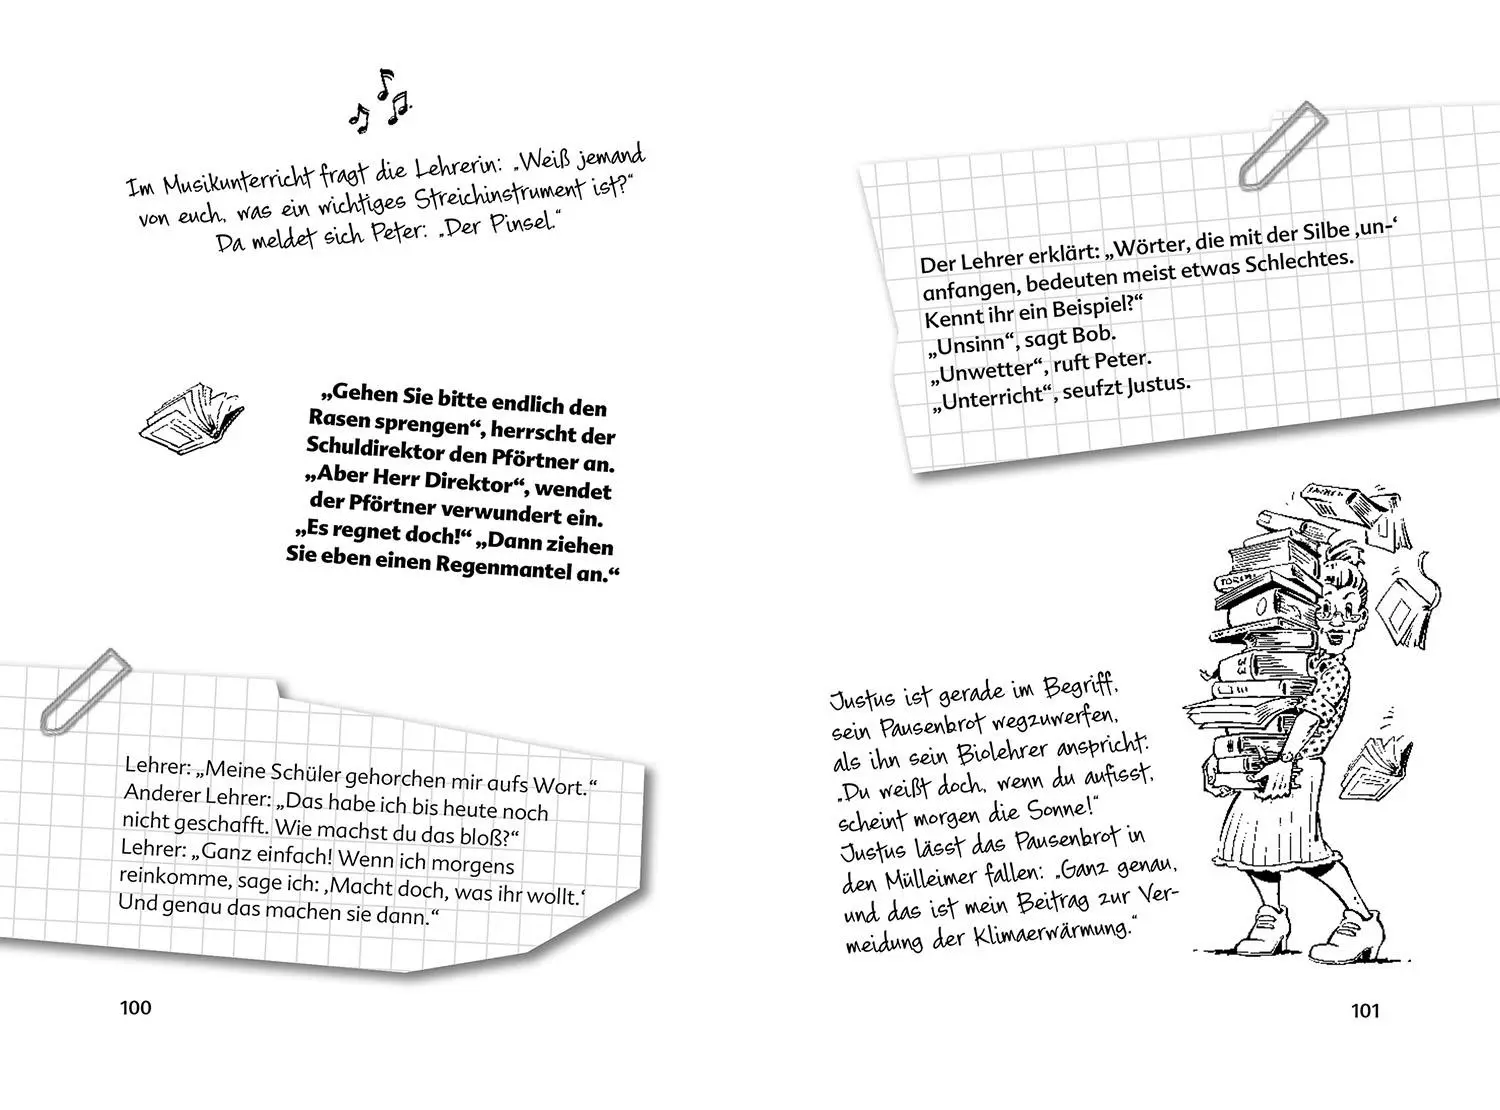 Im Musikunterricht fragt die Lehrerin: „Weiß jemand
von euch, was ein wichtiges Streichinstrument ist?“
Da meldet sich Peter: „Der Pinsel.“
„Gehen Sie bitte endlich den
Rasen sprengen“, herrscht der
Schuldirektor den Pförtner an.
„Aber Herr Direktor“, wendet
der Pförtner verwundert ein.
„Es regnet doch!“ „Dann ziehen
Sie eben einen Regenmantel an.“
Lehrer: „Meine Schüler gehorchen mir aufs Wort.“
Anderer Lehrer: „Das habe ich bis heute noch
nicht geschafft. Wie machst du das bloß?“
Lehrer: „Ganz einfach! Wenn ich morgens
reinkomme, sage ich: ‚Macht doch, was ihr wollt.‘
Und genau das machen sie dann.“
100
Der Lehrer erklärt: „Wörter, die mit der Silbe ‚un-‘
anfangen, bedeuten meist etwas Schlechtes.
Kennt ihr ein Beispiel?“
„Unsinn“, sagt Bob.
„Unwetter“, ruft Peter.
„Unterricht“, seufzt Justus.
Justus ist gerade im Begriff,
sein Pausenbrot wegzuwerfen,
als ihn sein Biolehrer anspricht:
„Du weißt doch, wenn du aufisst,
scheint morgen die Sonne!“
Justus lässt das Pausenbrot in
den Mülleimer fallen: „Ganz genau,
und das ist mein Beitrag zur Ver-
meidung der Klimaerwärmung.“
33
101